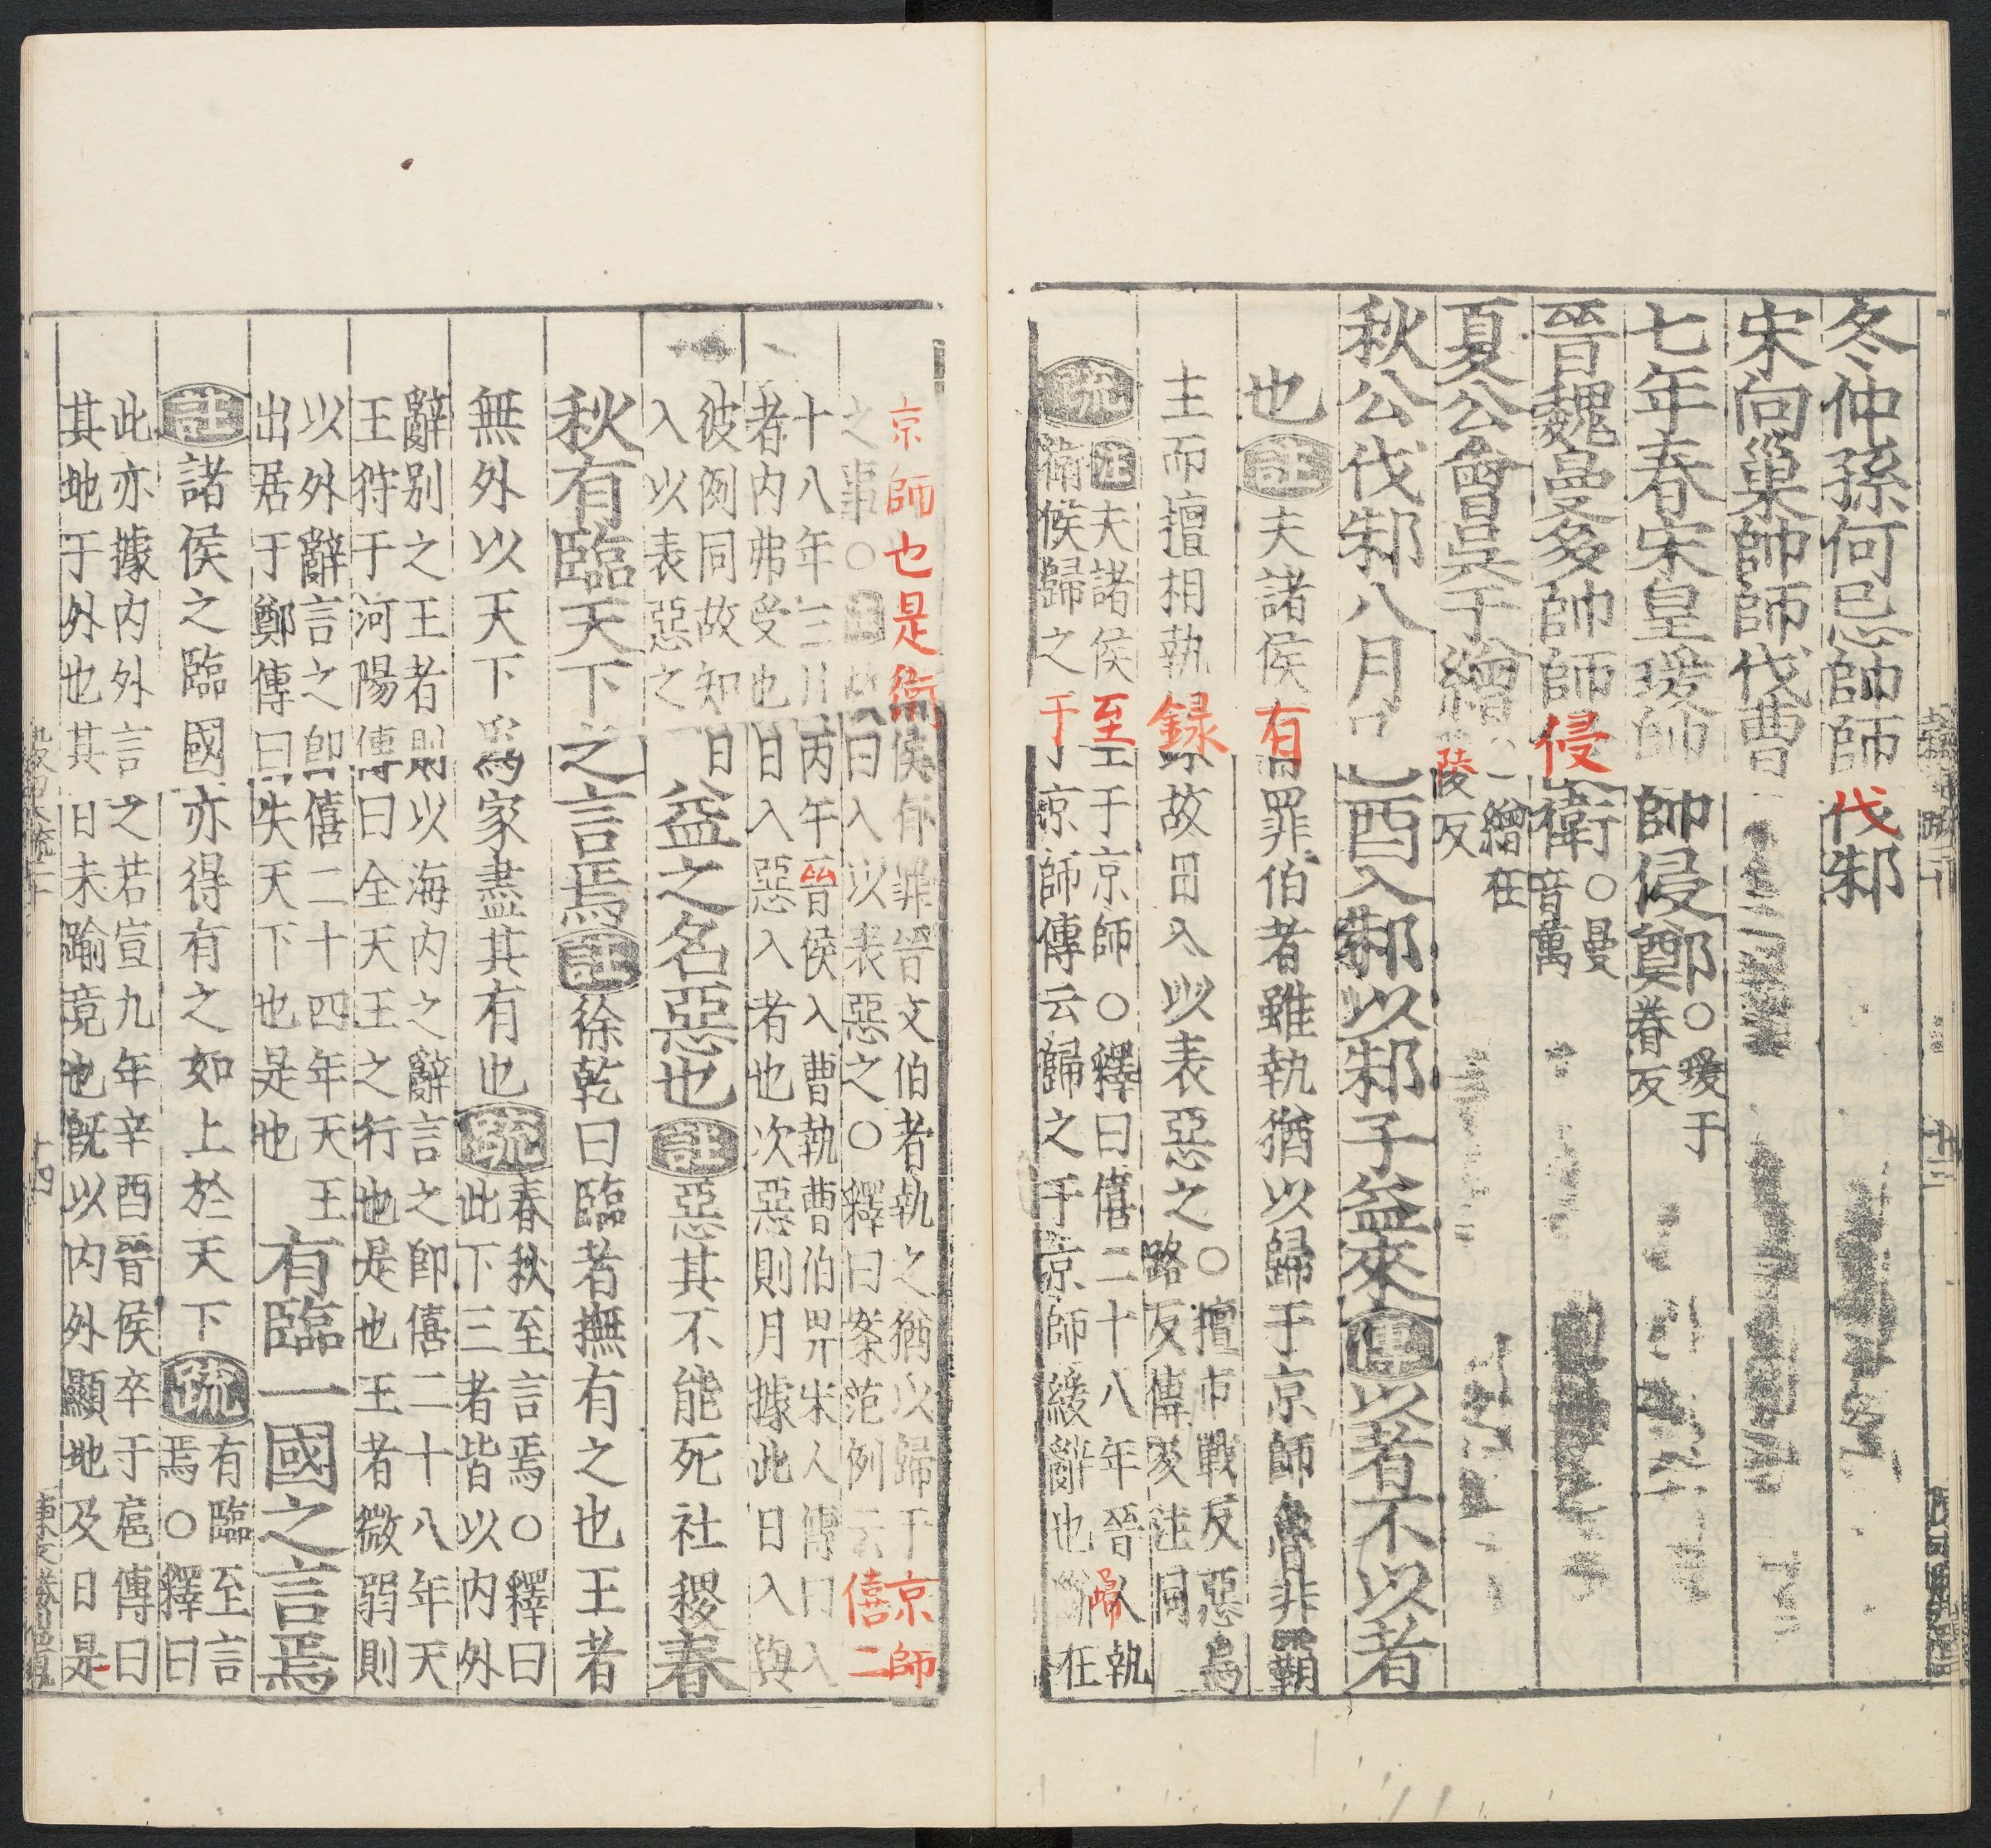 冬仲孫何忌帥師伐邾
宋向巢帥師伐曹
七年春宋皇瑗帥師侵鄭○瑗于眷反
晉魏曼多帥師侵衛○曼音萬
夏公會吳于繒○繒在陵反
秋公伐邾八月己酉入邾以邾子益來傳以者不以者
也註夫諸侯有罪伯者雖執猶以歸于京師魯非霸
主而擅相執錄故日入以表惡之○擅市戰反惡烏路反傳及注同
疏注夫諸侯至于京師○釋曰僖二十八年晉人執
衛侯歸之于京師傳云歸之于京師緩辭也斷在
京師也是衛侯有罪晉文伯者執之猶以歸于京師
之事○注故曰入以表惡之○釋曰案范例云僖二
十八年三月丙午晉侯入曹執曹伯畀宋人傳曰入
者內弗受也日入惡入者也次惡則月據此日入與
彼例同故知日
入以表惡之益之名惡也註惡其不能死社稷春
秋有臨天下之言焉註徐乾曰臨者撫有之也王者
無外以天下為家盡其有也疏春秋至言焉○釋曰
此下三者皆以內外
辭別之王者則以海內之辭言之即僖二十八年天
王狩于河陽傳曰全天王之行也是也王者微弱則
以外辭言之即僖二十四年天王
出居于鄭傳曰失天下也是也有臨一國之言焉
註諸侯之臨國亦得有之如王於天下疏有臨至言
焉○釋曰
此亦據內外言之若宣九年辛酉晉侯卒于扈傳曰
其地于外也其日未踰竟也既以內外顯地及日是